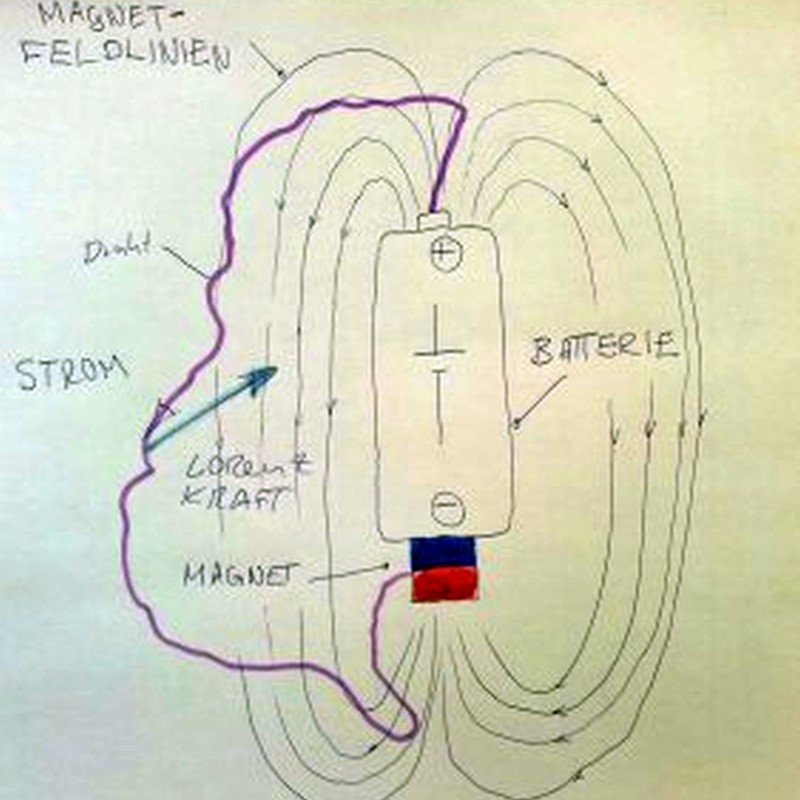 MAGNET-
FELDLINIEN
+
Draht
STROM
BATTERIE
LORENTZ
KRAFT
−
MAGNET